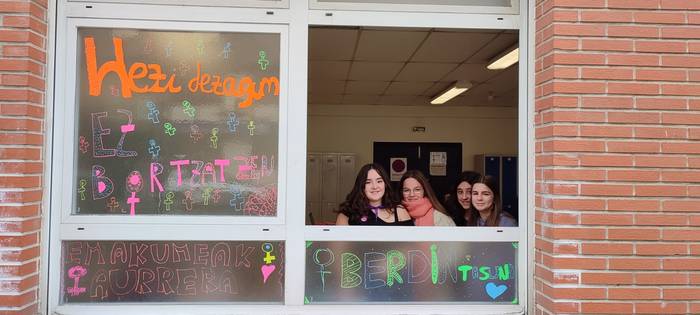 Hezi dezagun
EZ
BORTZATZEN
EMAKUMEAK
AURRERA
BERDINTASUNA